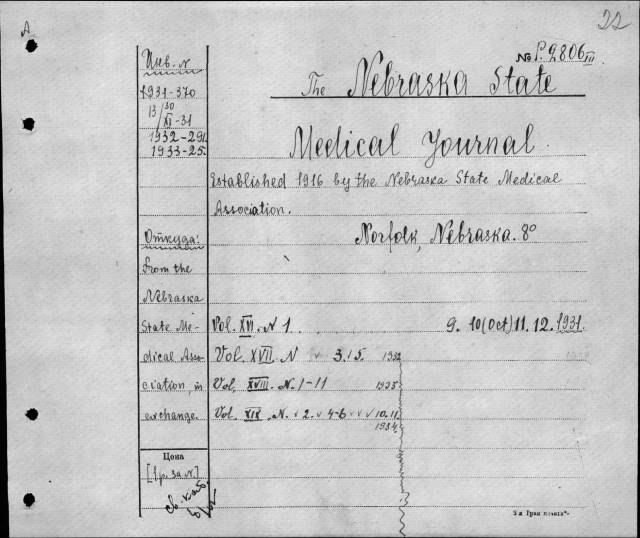 22
A
№ P.2806 III
The Nebraska State
Medical Journal.
Established 1916 by the Nebraska State Medical
Association.
Norfolk, Nebraska. 8°
Инв. N
1931-370
13/30
XI-31
1932-291
1933-25.
Откуда:
From the
Nebraska
State Me-
dical Asso-
ciation, in
exchange.
Цена
[гр. за N.]
Vol. XVI. N 1. 9. 10 (Oct) 11. 12. 1931.
Vol. XVII. N v 3. 5. 1932
Vol. XVIII. N. 1-11 1933
Vol. XIX. N. v 2. v 4-6 v v v 10. 11.
1934.